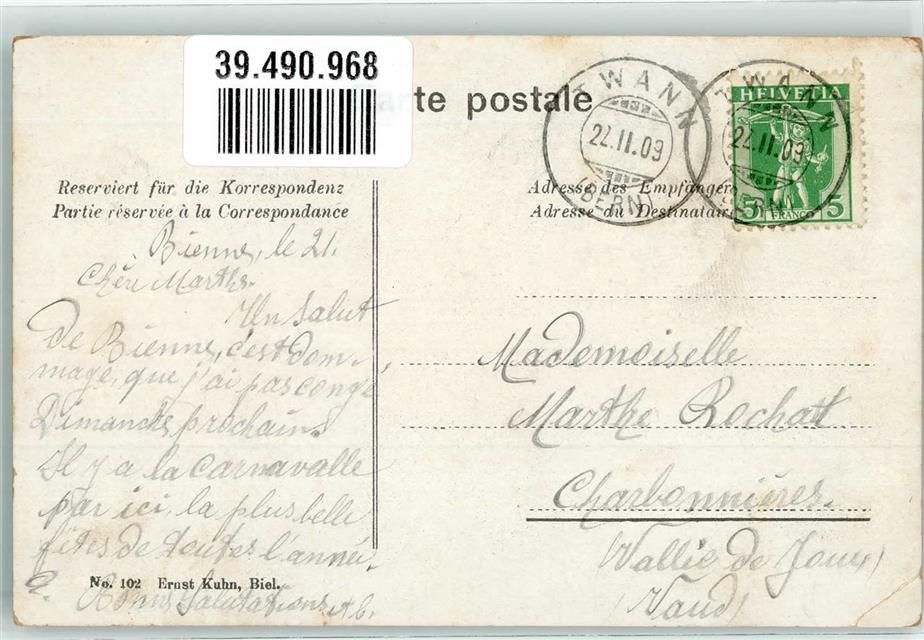 39.490.968
arte postale
TWANN
22.II.09
(BERN)
TWANN
22.II.09
(BERN)
HELVETIA
5 FRANCO 5
Reserviert für die Korrespondenz
Partie réservée à la Correspondance
Adresse des Empfängers
Adresse du Destinataire
Bienne, le 21.
Chère Marthe.
Un Salut
de Bienne, c'est dom-
mage, que j'ai pas congé,
Dimanche prochain.
Il y a la Carnavalle
par ici, la plus belle
fêtes de toutes l'année.
Bonne Salutations
No. 102 Ernst Kuhn, Biel.
Mademoiselle
Marthe Rochatt
Charbonnières.
(Vallie de Joux)
(Vaud)